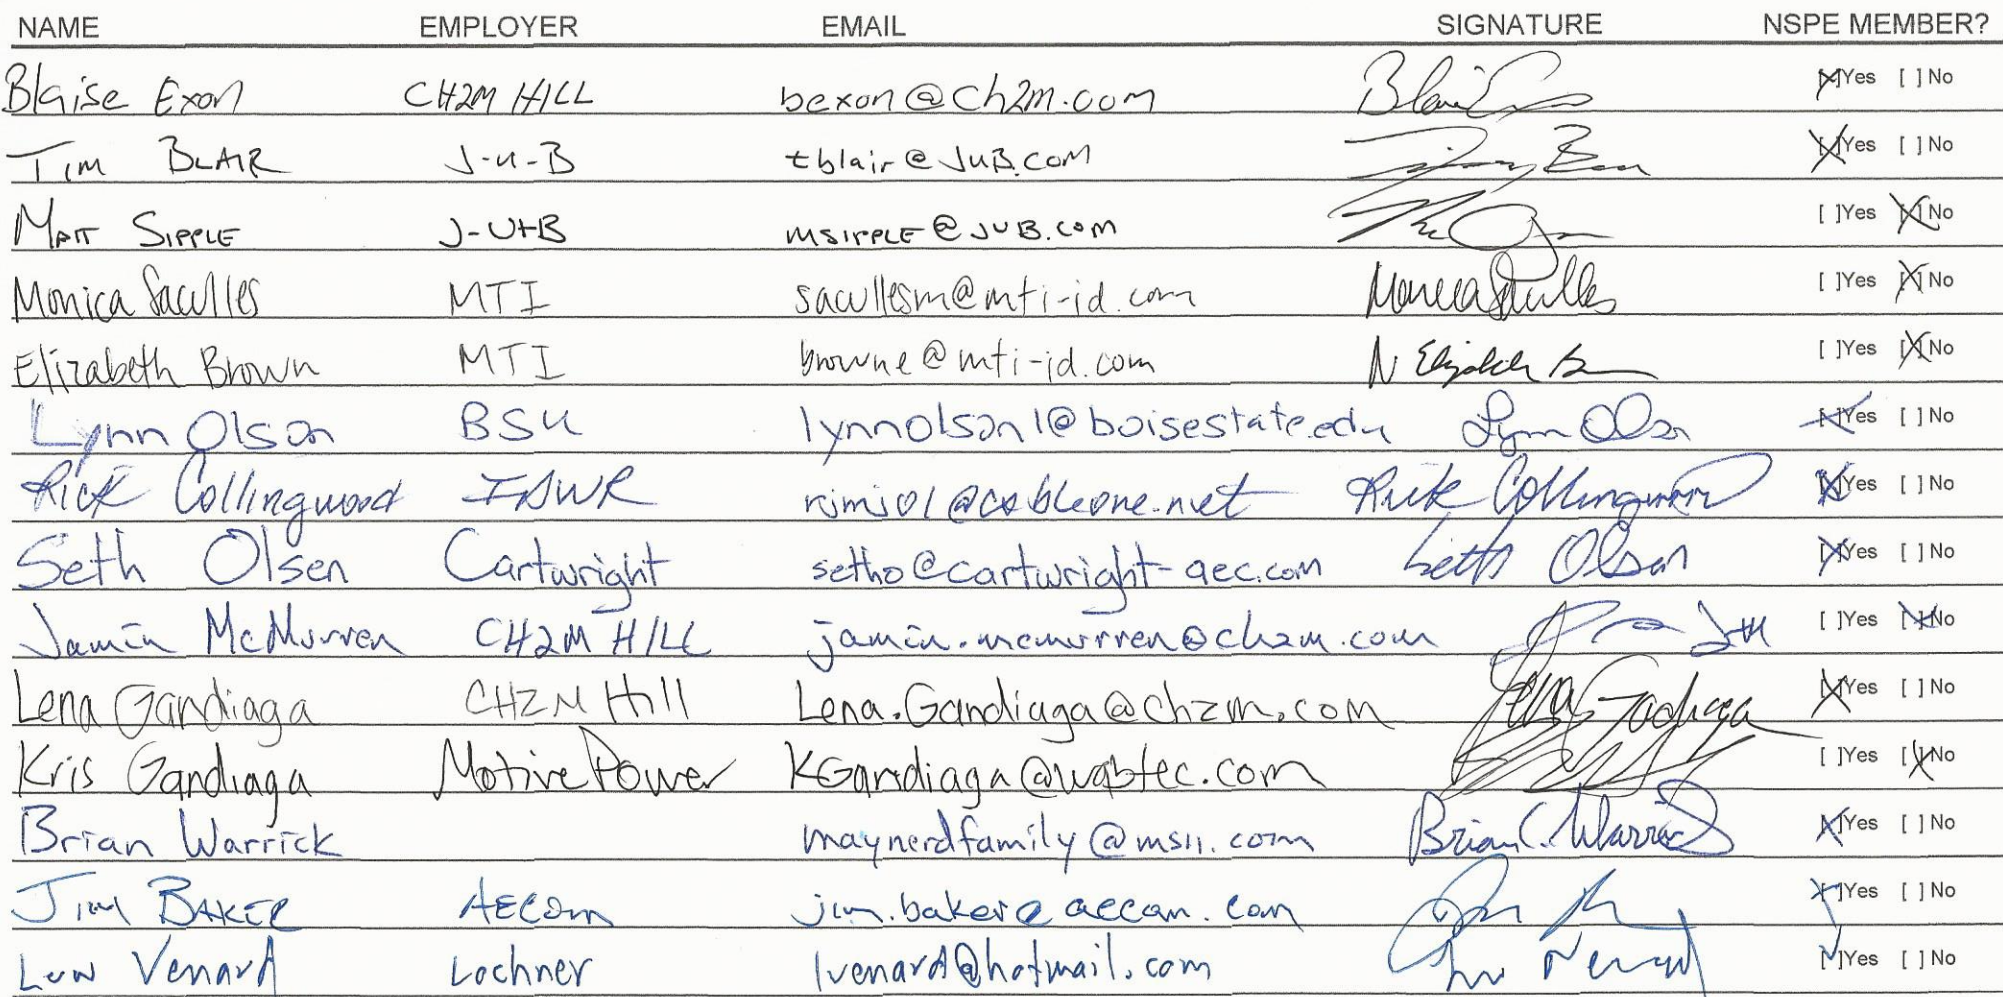 NAME EMPLOYER EMAIL SIGNATURE NSPE MEMBER?
Blaise Exon CH2M HILL bexon@ch2m.com [X]Yes [ ]No
Tim BLAIR J-U-B tblair@JUB.COM [X]Yes [ ]No
MATT SIPPLE J-U-B MSIPPLE@JUB.COM [ ]Yes [X]No
Monica Saculles MTI sacullesm@mti-id.com Monica Saculles [ ]Yes [X]No
Elizabeth Brown MTI browne@mti-id.com N Elizabeth [ ]Yes [X]No
Lynn Olson BSU lynnolson1@boisestate.edu Lynn Olson [X]Yes [ ]No
Rick Collingwood IDWR @cableone.net Rick Collingwood [X]Yes [ ]No
Seth Olsen Cartwright setho@cartwright-aec.com Seth Olsen [X]Yes [ ]No
Jamin McMurren CH2M HILL jamin.mcmurren@ch2m.com [ ]Yes [X]No
Lena Gandiaga CH2M Hill Lena.Gandiaga@ch2m.com Lena Gandiaga [X]Yes [ ]No
Kris Gandiaga MotivePower KGandiaga@wabtec.com [ ]Yes [X]No
Brian Warrick maynerdfamily@msn.com Brian C. Warrick [X]Yes [ ]No
Jim BAKER AECOM jim.baker@aecom.com [X]Yes [ ]No
Venard Lochner lvenard@hotmail.com Venard [X]Yes [ ]No